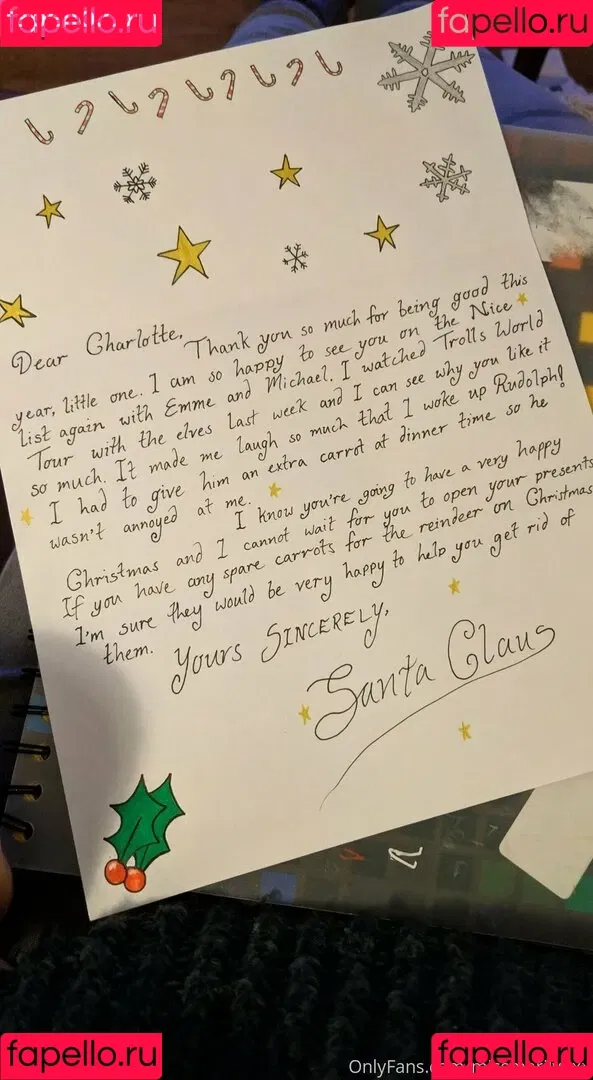 fapello.ru
fapello.ru
Dear Charlotte,
Thank you so much for being good this
year, little one. I am so happy to see you on the Nice
list again with Emme and Michael. I watched Trolls World
Tour with the elves last week and I can see why you like it
so much. It made me laugh so much that I woke up Rudolph!
I had to give him an extra carrot at dinner time so he
wasn't annoyed at me.
I know you're going to have a very happy
Christmas and I cannot wait for you to open your presents
If you have any spare carrots for the reindeer on Christmas
I'm sure they would be very happy to help you get rid of
them.
Yours Sincerely,
Santa Claus
fapello.ru
fapello.ru